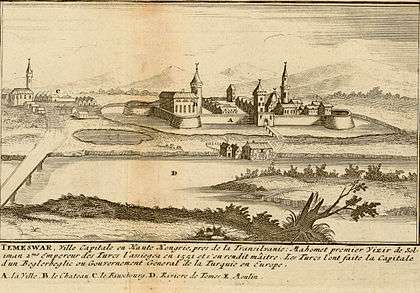 D
TEMESWAR, Ville Capitale en Haute Hongrie, pres de la Transilvanie. Mahomet premier Vizir de Soli-
man 2.me Empereur des Turcs l'assiegea en 1551 et s'en rendit maitre. Les Turcs l'ont faite la Capitale
d'un Beglerbeglic ou Gouvernement General de la Turquie en Europe.
A. la Ville. B. le Chateau. C. le Fauxbourg. D. Riviere de Temes. E. Moulin.